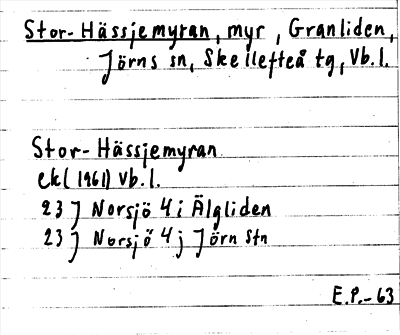 Stor-Hässjemyran, myr, Granliden,
Jörns sn, Skellefteå tg, Vb.l.
Stor-Hässjemyran
ekl (1961) Vb.l.
23 J Norsjö 4 i Älgliden
23 J Norsjö 4 j Jörn Stn
E.P.-63